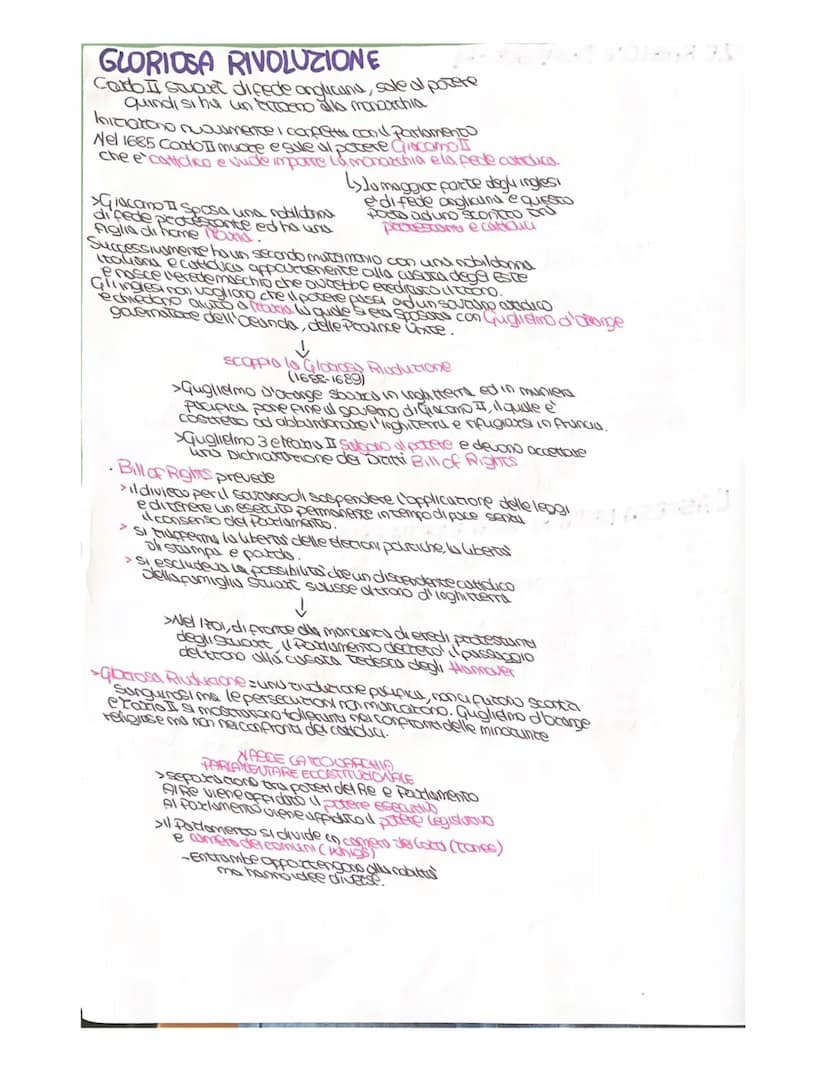 GLORIOSA RIVOLUZIONE
Carlo II Stuart di fede anglicana, sale al potere
quindi si ha un ritorno alla monarchia
Iniziarono nuovamente i conflitti con il Parlamento
Nel 1685 Carlo II muore e sale al potere Giacomo II
che e' cattolico e vuole imporre la monarchia e la fede cattolica.
↳ la maggior parte degli inglesi
e' di fede anglicana e questo
porta ad uno scontro tra
protestanti e cattolici
>Giacomo II sposa una nobildonna
di fede protestante ed ha una
figlia di nome Maria.
Successivamente ha un secondo matrimonio con una nobildonna
italiana e cattolica appartenente alla casata degli Este
e nasce l'erede maschio che avrebbe ereditato il trono.
Gli inglesi non vogliono che il potere passi ad un sovrano cattolico
e chiedono aiuto a Maria la quale si era sposata con Guglielmo d'Orange
governatore dell'Olanda, delle Province Unite.
↓
scoppia la Gloriosa Rivoluzione
(1688-1689)
>Guglielmo d'Orange sbarca in Inghilterra ed in maniera
pacifica pone fine al governo di Giacomo II, il quale e'
costretto ad abbandonare l'Inghilterra e rifugiarsi in Francia.
>Guglielmo 3 e Maria II salgono al potere e devono accettare
una Dichiarazione dei Diritti Bill of Rights
· Bill of Rights prevede
> il divieto per il sovrano di sospendere l'applicazione delle leggi
e di tenere un esercito permanente in tempo di pace senza
il consenso del Parlamento.
> si riafferma la liberta' delle elezioni politiche, la liberta'
di stampa e parola.
> si escludeva la possibilita' che un discendente cattolico
della famiglia Stuart salisse al trono d'Inghilterra
↓
>Nel 1701, di fronte alla mancanza di eredi protestanti
degli Stuart, il Parlamento decreto' il passaggio
del trono alla casata tedesca degli Hannover
>Gloriosa Rivoluzione = una rivoluzione pacifica, non ci furono scontri
sanguinosi ma le persecuzioni non mancarono. Guglielmo d'Orange
e Maria II si mostrarono tolleranti nei confronti delle minoranze
religiose ma non nei confronti dei cattolici.
NASCE LA MONARCHIA
PARLAMENTARE E COSTITUZIONALE
>separazione tra poteri del Re e Parlamento
Al Re viene affidato il potere esecutivo
Al Parlamento viene affidato il potere legislativo
>il Parlamento si divide in camera dei Lord (Tories)
e camera dei comuni (Whigs)
-Entrambe appartengono alla nobilta'
ma hanno idee diverse.